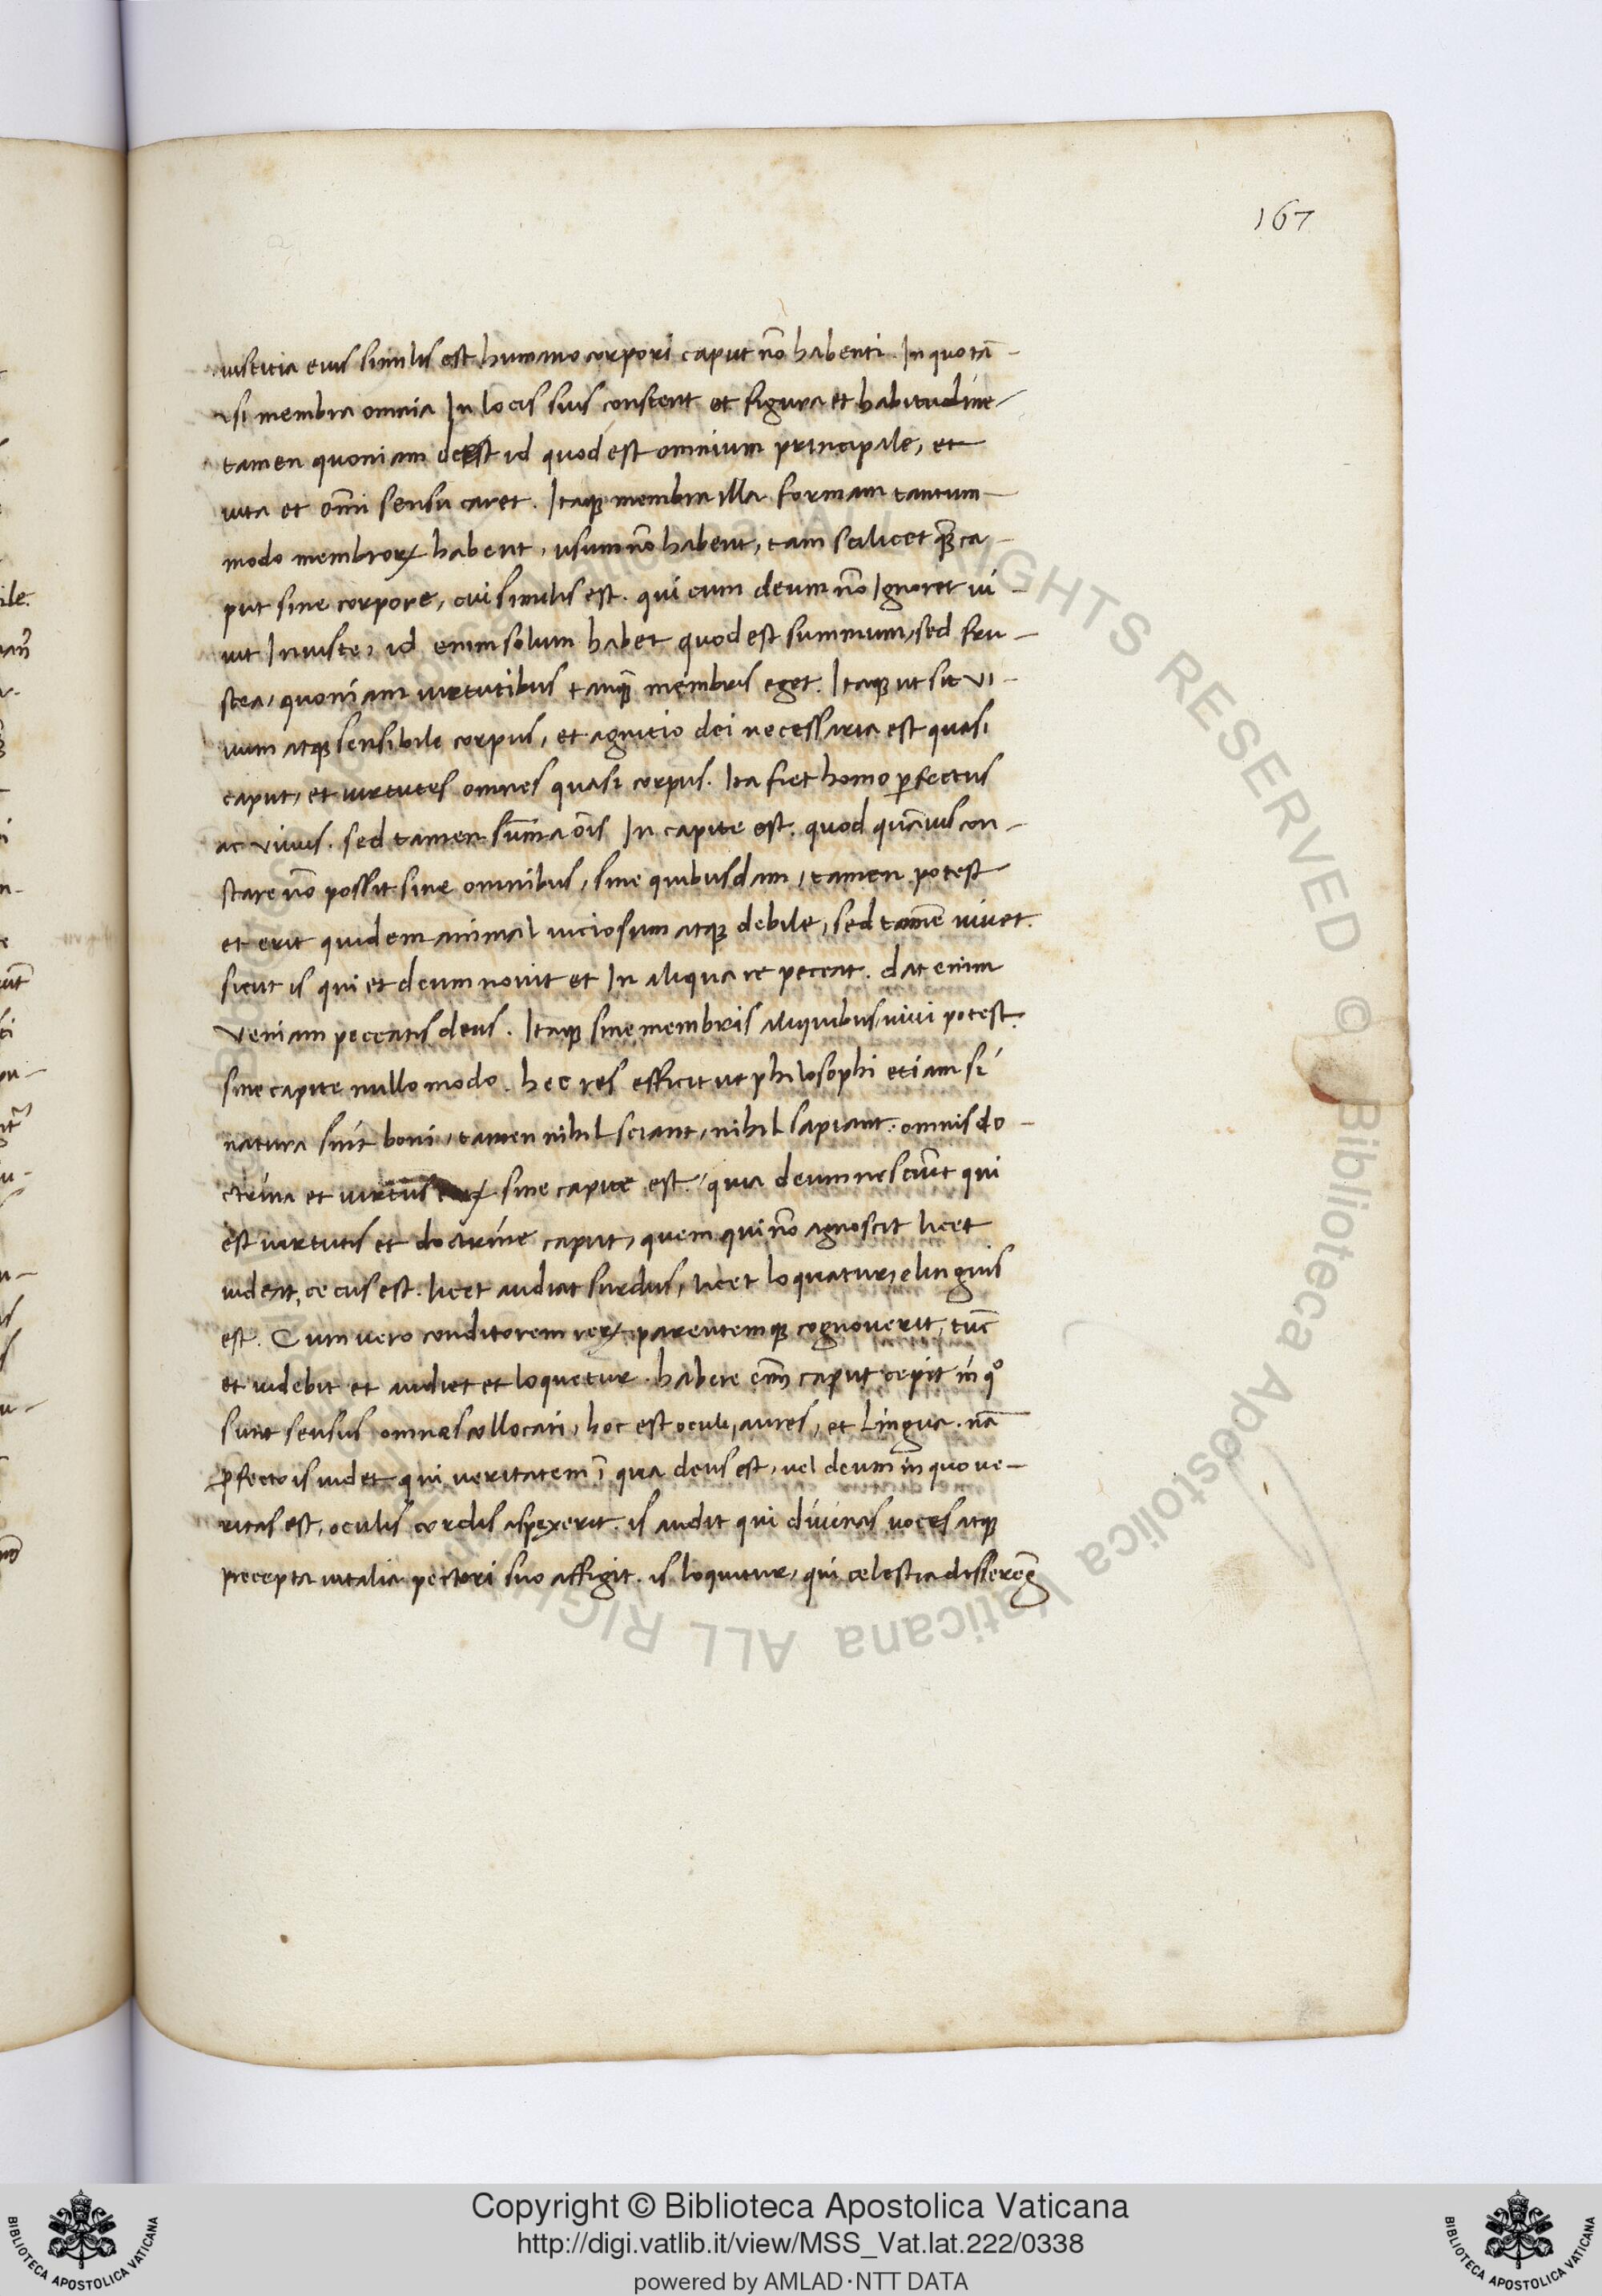 167
iusticia eius similis est humano corpori caput nō habenti. In quo tā-
-si membra omnia In locis suis constent et figura et habitudine
tamen quoniam deest id quod est omnium principale, et
uita et om̄i sensu caret. Itaq; membra illa formam tantum-
modo membroꝝ habent, usum nō habent, tam scilicet q̄ ca-
put sine corpore, cui similis est. qui cum deum nō Ignoret ui-
uit Iniuste, id enim solum habet quod est summum, sed fru-
stra, quoniam uirtutibus tanq̄ membris eget. Itaq; ut sit vi-
uum atq; sensibile corpus, et agnitio dei necessaria est quasi
caput, et uirtutes omnes quasi corpus. Ita fiet homo ꝑfectus
ac viuus. sed tamen sum̄a ōis In capite est. quod quāuis con-
stare nō possit sine omnibus, sine quibusdam, tamen potest
et erit quidem animal uiciosum atq; debile, sed tamē uiuet.
sicut is qui et deum nouit et In aliqua re peccat. dat enim
veniam peccatis deus. Itaq; sine membris aliquibus, uiui potest.
sine capite nullo modo. hec res efficit ut philosophi etiam si
natura sint boni, tamen nihil sciant, nihil sapiant. omnis do-
ctrina et uirtus eoꝝ sine capite est. quia deum nesciūt qui
est uirtutis et doctrine caput, quem qui nō agnoscit licet
uideat, cecus est. licet audiat surdus, licet loquatur, elinguis
est. Cum uero conditorem reꝝ parentemq; cognouerit, tūc
et uidebit et audiet et loquetur. habere enī caput cepit in qͦ
sunt sensus omnes collocati, hoc est oculi, aures, et Lingua. nā
ꝓfecto is uidet qui veritatem ī qua deus est, uel deum in quo ue-
ritas est, oculis cordis aspexerit. is audit qui diuinas uoces atq;
precepta uitalia pectori suo affigit. is loquitur, qui celestia disserēs
© Biblioteca Apostolica Vaticana ALL RIGHTS RESERVED
Copyright © Biblioteca Apostolica Vaticana
http://digi.vatlib.it/view/MSS_Vat.lat.222/0338
powered by AMLAD·NTT DATA
BIBLIOTECA APOSTOLICA VATICANA
BIBLIOTECA APOSTOLICA VATICANA